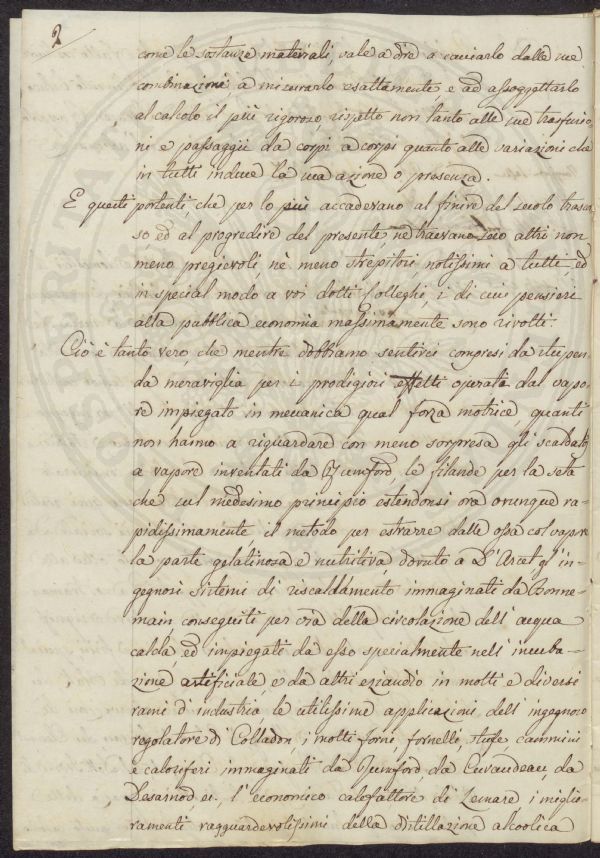 2
come le sostanze materiali, vale a dire a cacciarlo dalle sue
combinazioni a misurarlo esattamente e ad assoggettarlo
al calcolo il più rigoroso, rispetto non tanto alle sue trasfusio-
ni e passaggii da corpi a corpi quanto alle variazioni che
in tutti induce la sua azione o presenza.
E questi portenti, che per lo più accadevano al finire del secolo trascor
so, ed al progredire del presente, ne traevano seco altri non
meno pregievoli, nè meno strepitosi notissimi a tutti, ed
in special modo a voi dotti Colleghi, i di cui pensieri
alla pubblica economia massimamente sono rivolti.
Ciò è tanto vero, che mentre dobbiamo sentirci compresi da stupen-
da meraviglia per i prodigiosi effetti operati dal vapo-
re impiegato in meccanica qual forza motrice, quanti
non hanno a riguardare con meno sorpresa gli scaldatoj
a vapore inventati da Rumford, le filande per la seta
che sul medesimo principio estendonsi ora ovunque ra-
pidissimamente, il metodo per estrarre dalle ossa col vapore
la parte gelatinosa e nutritiva, dovuto a D'Arcet, gl'in-
gegnosi sistemi di riscaldamento immaginati da Bonne-
main, conseguiti per via della circolazione dell'acqua
calda, ed impiegati da esso specialmente nell'incuba-
zione artificiale, e da altri eziandio in molti e diversi
rami d'industria, le utilissime applicazioni dell'ingegnoso
regolatore di Colladon, i molti forni, fornelli, stufe, cammini
e caloriferi immaginati da Rumford, da Curaudeau, da
Desarnod ec. l'economico calefattore di Lemare i miglio-
ramenti ragguardevolissimi della distillazione alcoolica